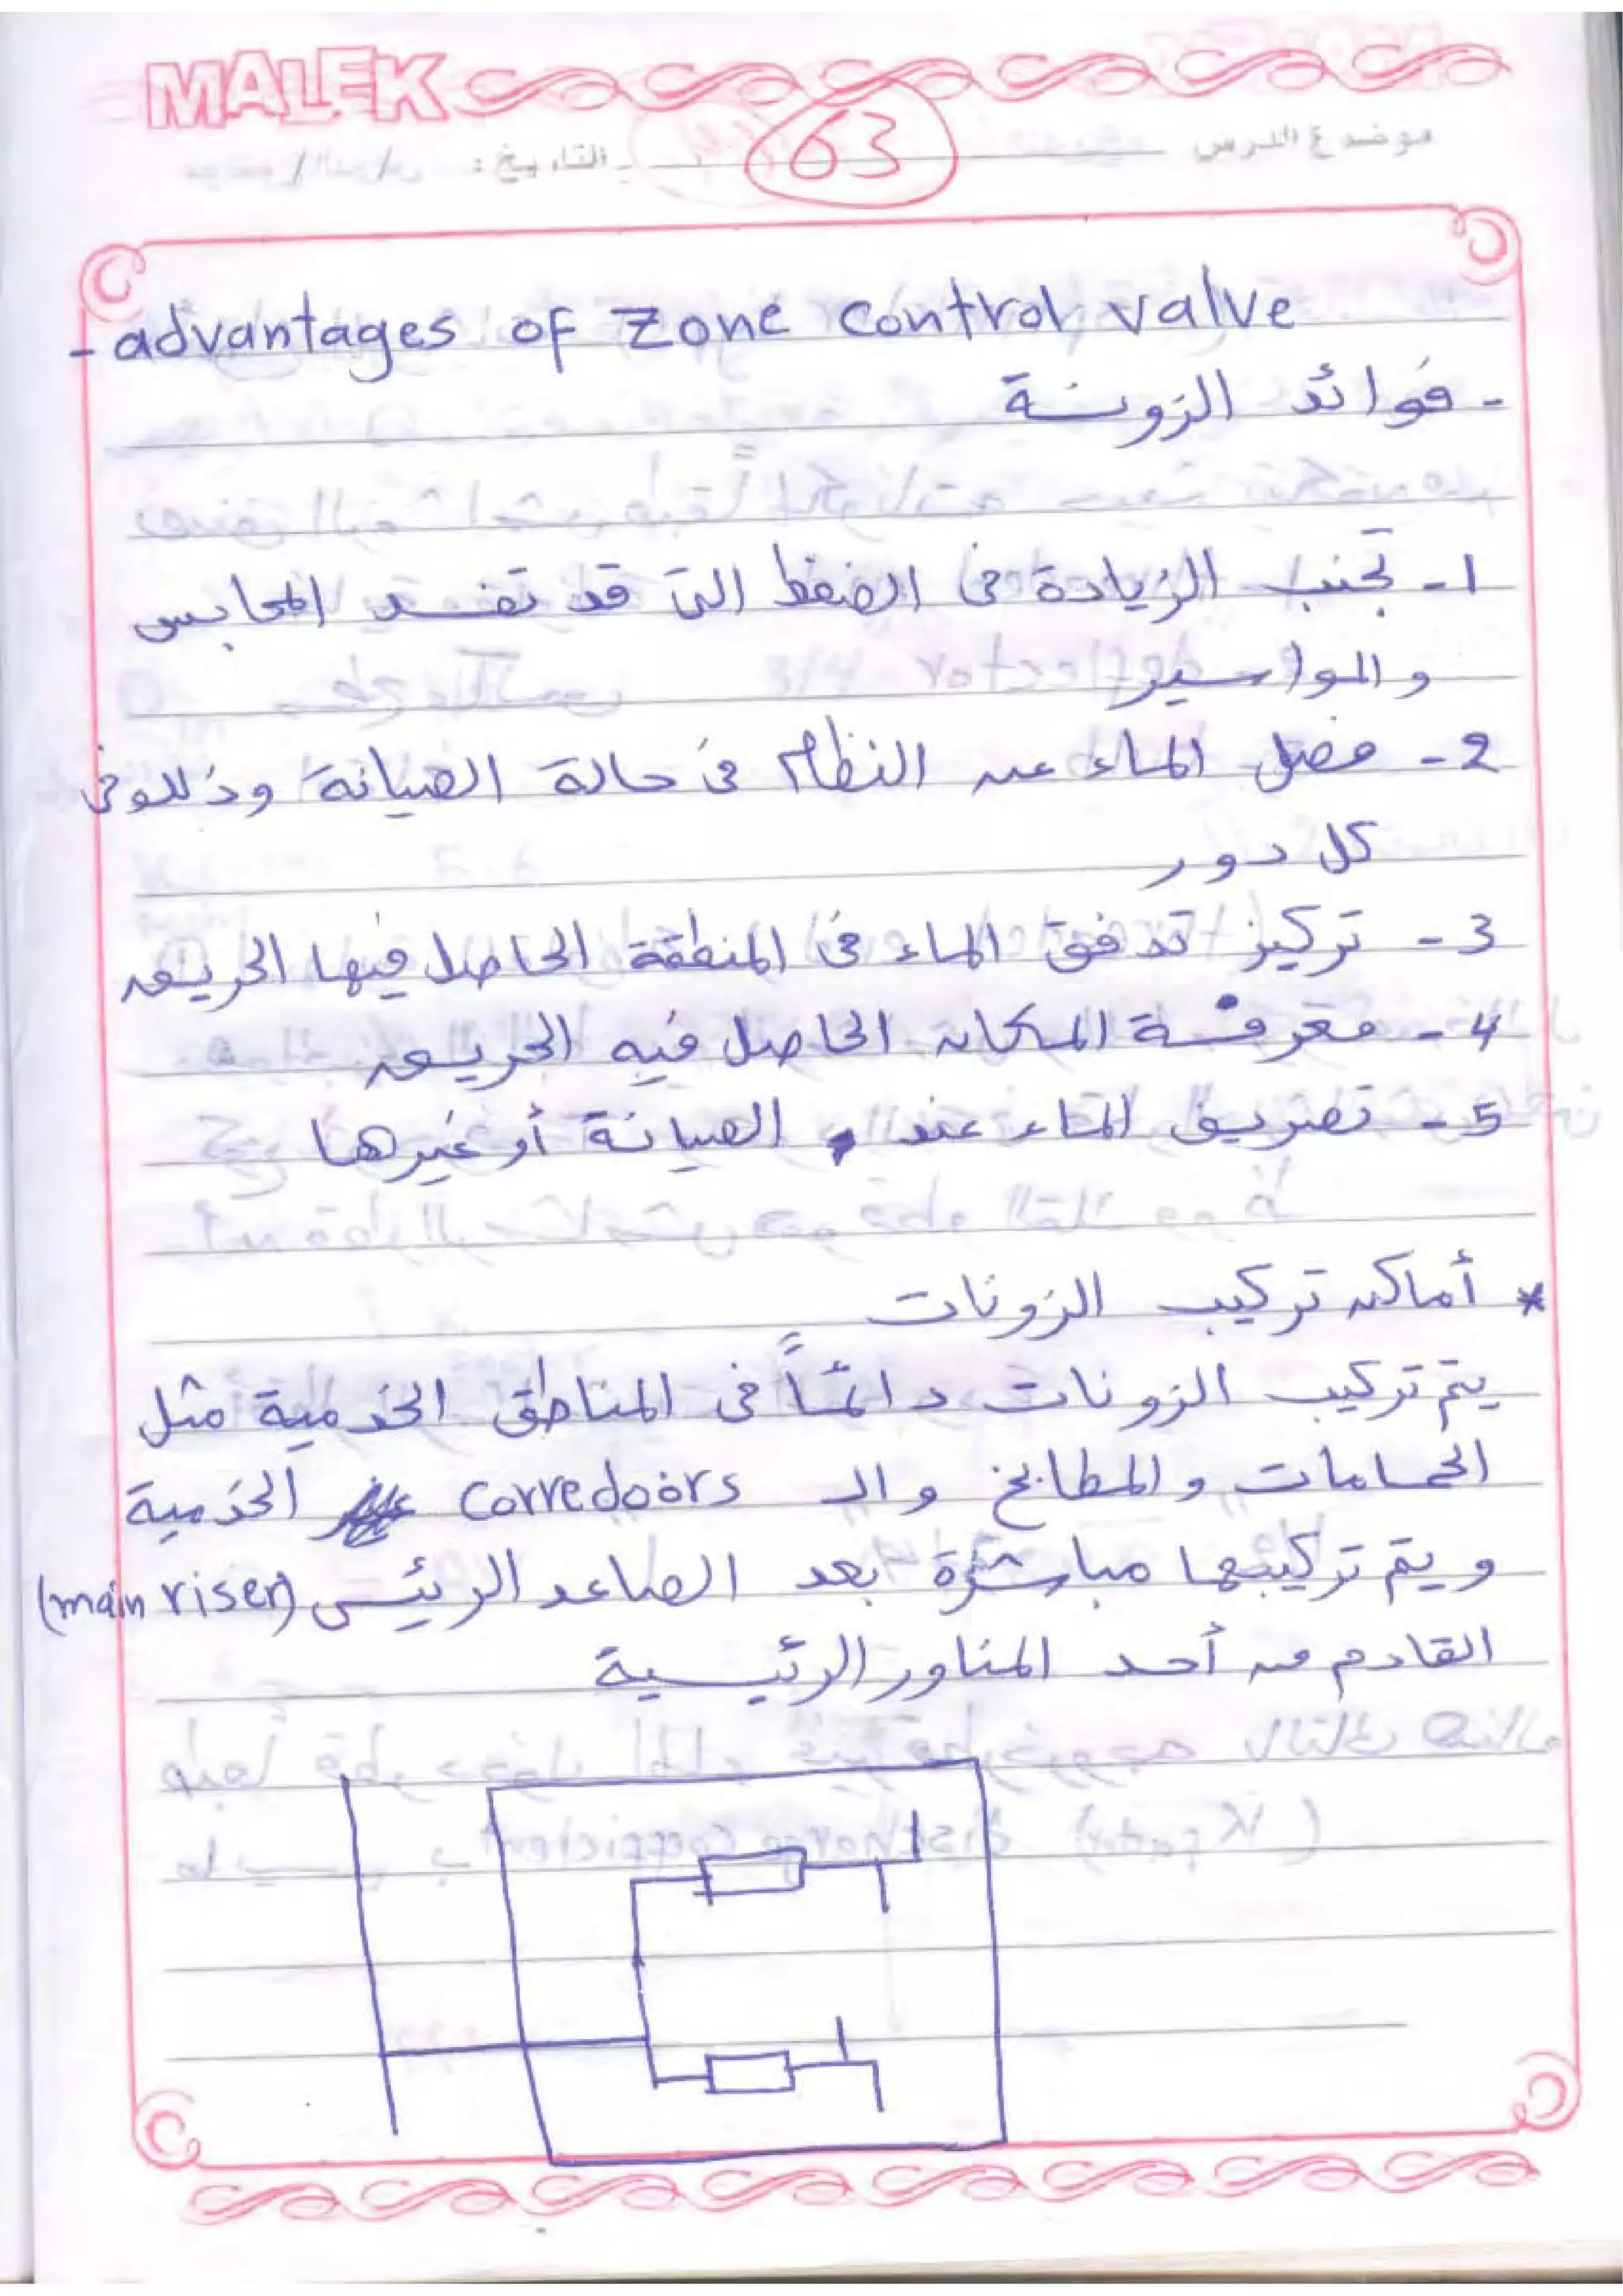 MALEK
63
موضوع الدرس
التاريخ :
- advantages of Zone control valve
- فوائد الزونة
1- تجنب الزيادة فى الضغط التى قد تفسد المحابس
والمواسير
2- فصل الماء عن النظام فى حالة الصيانة وذلك فى
كل دور
3- تركيز تدفق الماء فى المنطقة الحاصل فيها الحريق
4- معرفة المكان الحاصل فيه الحريق
5- تصريف الماء عند الصيانة أو غيرها
* أماكن تركيب الزونات
يتم تركيب الزونات دائماً فى المناطق الخدمية مثل
الحمامات والمطابخ والـ corredoors الخدمية
ويتم تركيبها مباشرة بعد الصاعد الرئيسى (main riser)
القادم من أحد المناور الرئيسية